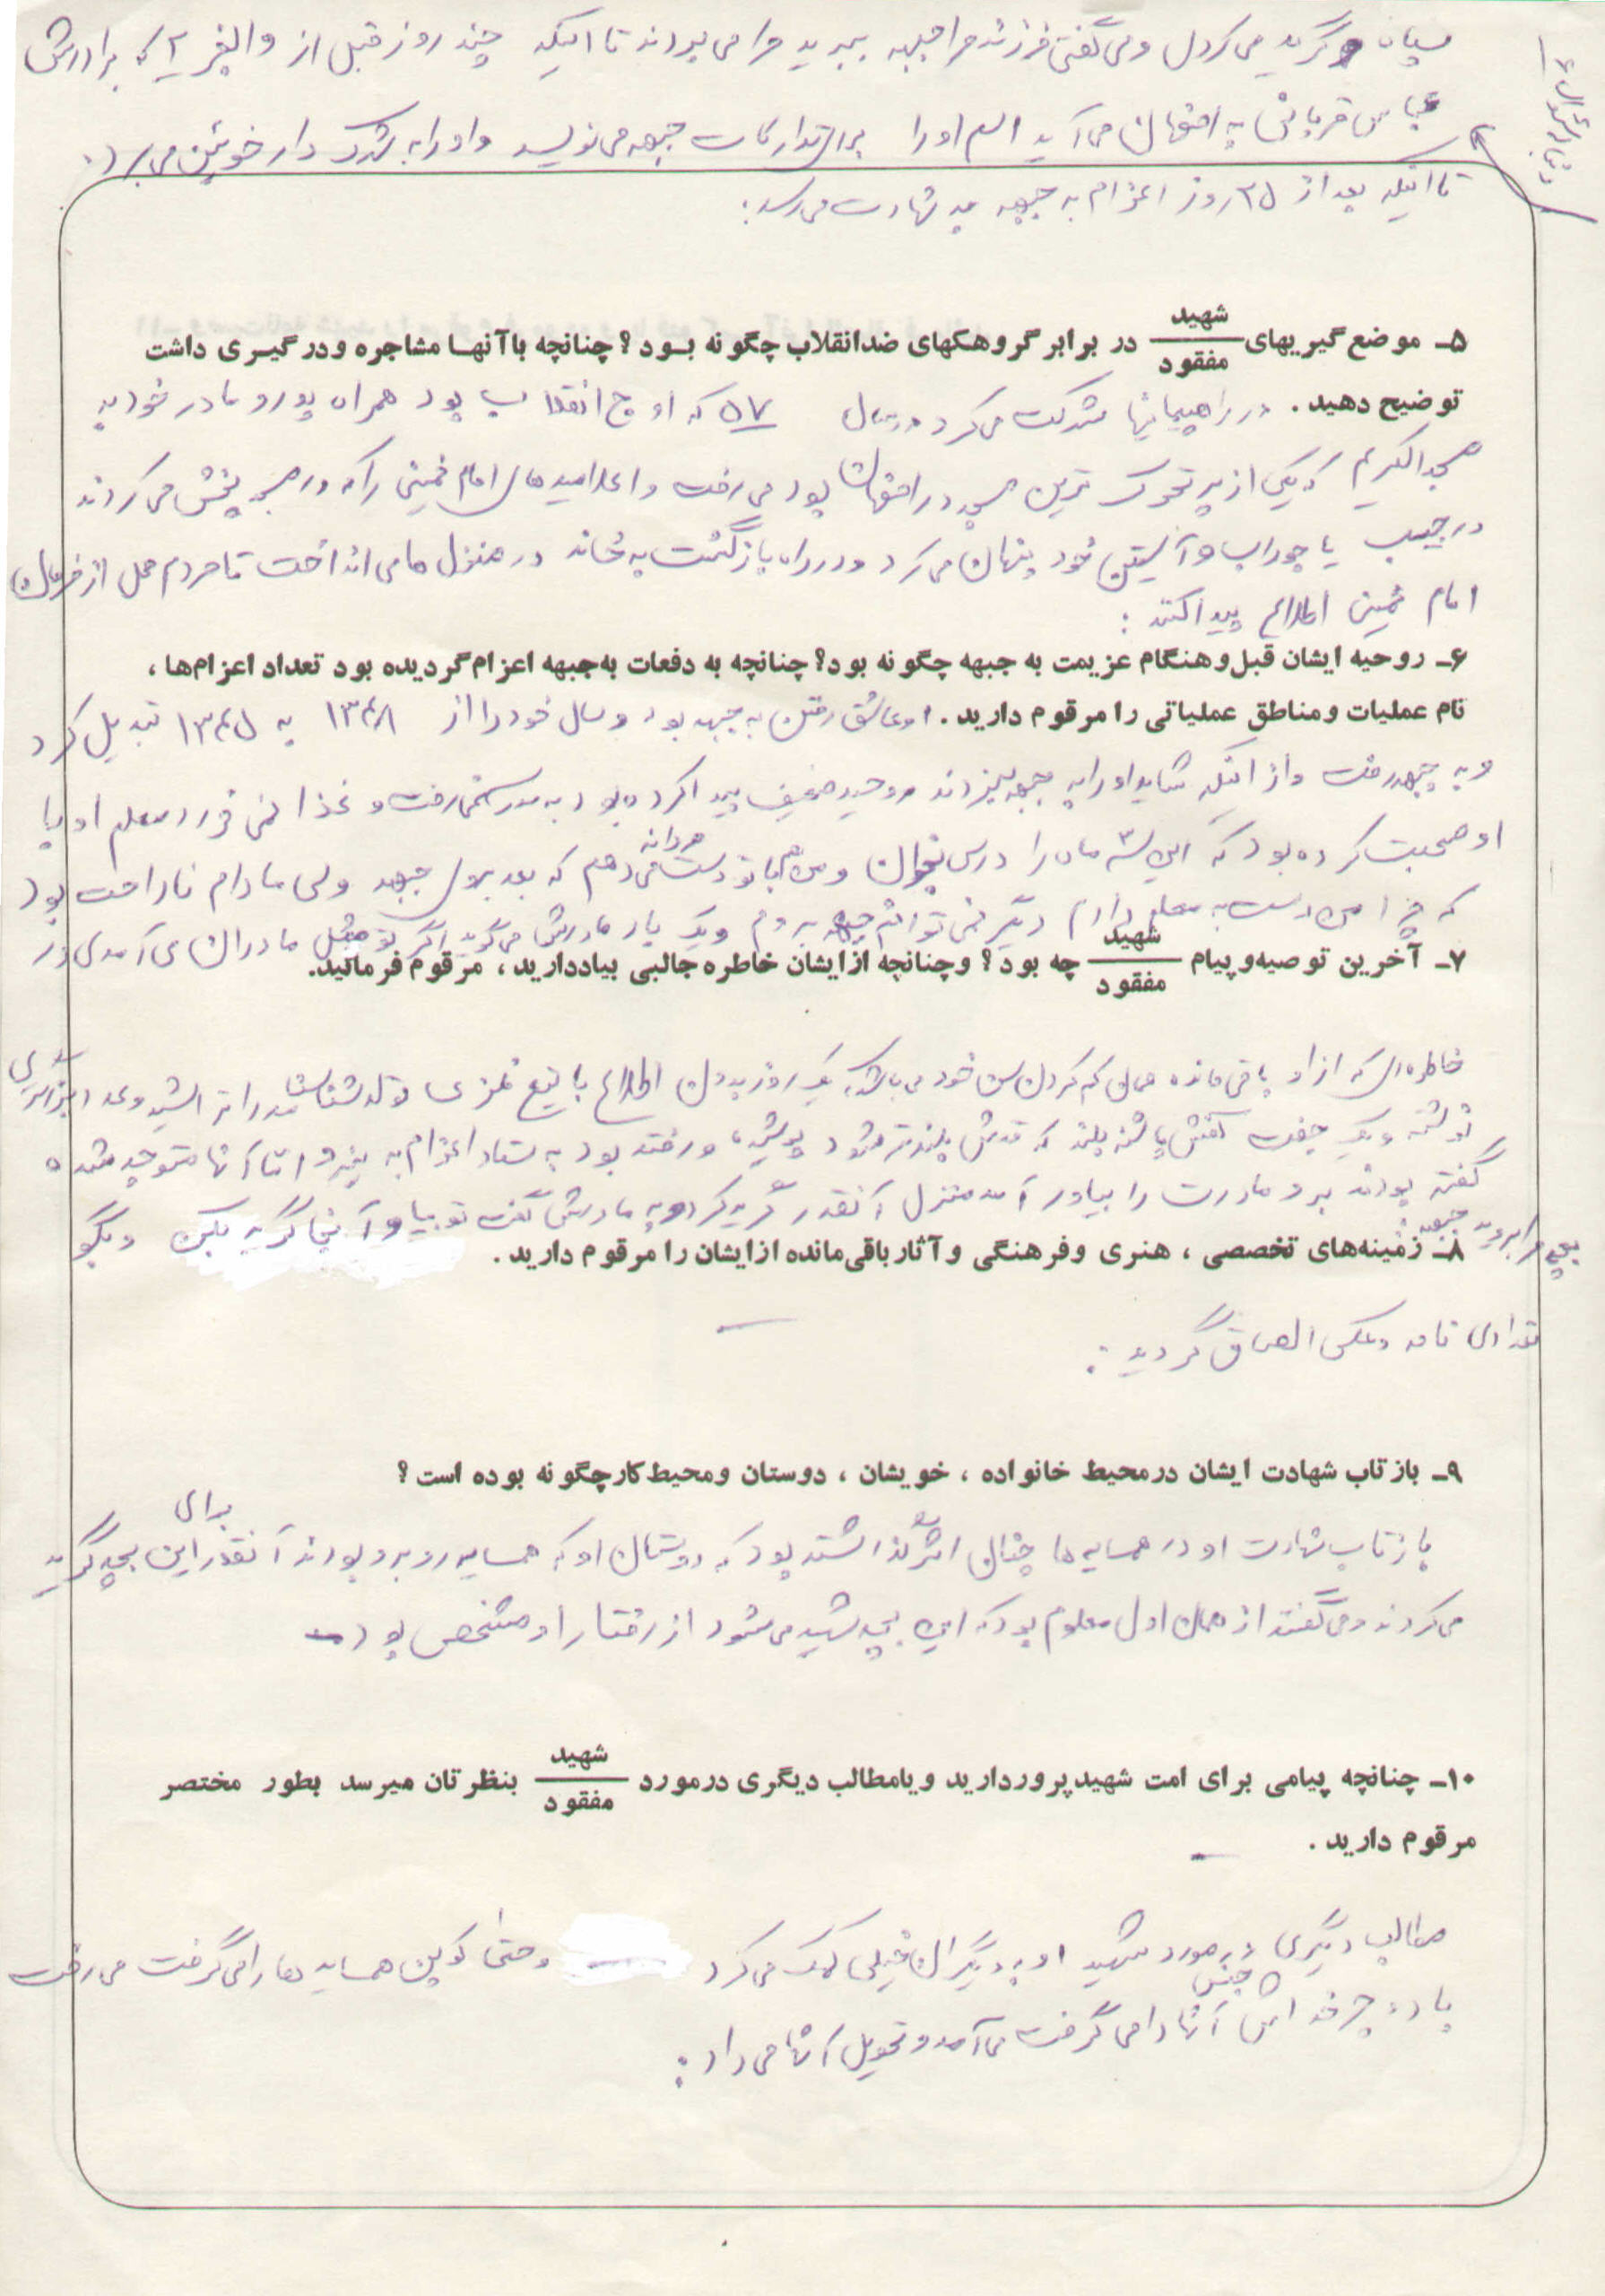 سپاه و گریه می‌کردی و می‌گفتی فرزند مرا جبهه ببرید مرا می‌بردند تا اینکه چند روز قبل از والفجر ۲ که برادرش
عباس قربانی به اصفهان می‌آید اسم او را برای تدارکات جبهه می‌نویسد و او را به شهرک دارخوئین می‌برد.
تا اینکه بعد از ۲۵ روز اعزام به جبهه به شهادت می‌رسد:
۵ـ موضع‌گیریهای شهید / مفقود در برابر گروهکهای ضدانقلاب چگونه بود؟ چنانچه باآنها مشاجره ودرگیری داشت
توضیح دهید. در راهپیمائیها شرکت می‌کرد در سال ۵۷ که اوج انقلاب بود همراه پدر و مادر خود به
مسجد الکریم که یکی از پر تحرک ترین مسجد در اصفهان بود می‌رفت و اعلامیه های امام خمینی را که در مسجد پخش می‌کردند
در جیب یا جوراب و آستین خود پنهان می‌کرد و در راه بازگشت به خانه در منزل ها می‌انداخت تا مردم محل از فرمان
امام خمینی اطلاع پیدا کنند:
۶ـ روحیه ایشان قبل وهنگام عزیمت به جبهه چگونه بود؟ چنانچه به دفعات به‌جبهه اعزام گردیده بود تعداد اعزام‌ها،
نام عملیات ومناطق عملیاتی را مرقوم دارید. او عاشق رفتن به جبهه بود و سال خود را از ۱۳۴۸ به ۱۳۴۵ تبدیل کرد
و به جبهه رفت و از اینکه شاید او را به جبهه نبرند روحیه ضعیف پیدا کرده بود به مدرسه نمی‌رفت و غذا نمی‌خورد معلم او با
او صحبت کرده بود که این سه ماه را درس بخوان و من با تو دست مردانه می‌دهم که بعد بروی جبهه ولی مادام ناراحت بود
که چرا من دست به معلم دادم دیگر نمی‌توانم جبهه بروم و یک بار مادرش می‌گوید اگر تو مثل مادران می‌آمدی در
۷ـ آخرین توصیه‌وپیام شهید / مفقود چه بود؟ وچنانچه ازایشان خاطره جالبی بیاددارید، مرقوم فرمائید.
خاطره‌ای که از او باقی مانده همان کم کردن سن خود می‌باشد که یک روز بدون اطلاع با تیغ فلزی تولد شناسنامه را تراشیده و عدد دیگری
نوشته و یک جفت کفش پاشنه بلند که قدش بلندتر شود پوشیده و رفته بود به ستاد اعزام به نیرو اما آنها متوجه شده
گفته بودند برو مادرت را بیاور آمد منزل آنقدر گریه کرد و به مادرش گفت تو بیا و آنجا گریه بکن و بگو
بچه مرا ببرید جبهه:
۸ـ زمینه‌های تخصصی، هنری وفرهنگی وآثارباقی‌مانده ازایشان رامرقوم دارید.
تعدادی نامه و عکس الصاق گردید:
۹ـ بازتاب شهادت ایشان درمحیط خانواده، خویشان، دوستان ومحیط‌کارچگونه بوده است؟
بازتاب شهادت او در همسایه ها چنان اثر گذاشته بود که دوستان او که همسایه روبرو بودند آنقدر برای این بچه گریه
می‌کردند و می‌گفتند از همان اول معلوم بود که این بچه شهید می‌شود از رفتار او مشخص بود
۱۰ـ چنانچه پیامی برای امت شهیدپروردارید ویامطالب دیگری درمورد شهید / مفقود بنظرتان میرسد بطور مختصر
مرقوم دارید.
مطالب دیگری در مورد شهید او به دیگران خیلی کمک می‌کرد و حتی کوپن همسایه ها را می‌گرفت می‌رفت
با دوچرخه اش جنس آنها را می‌گرفت می‌آمد و تحویل آنها می‌داد: